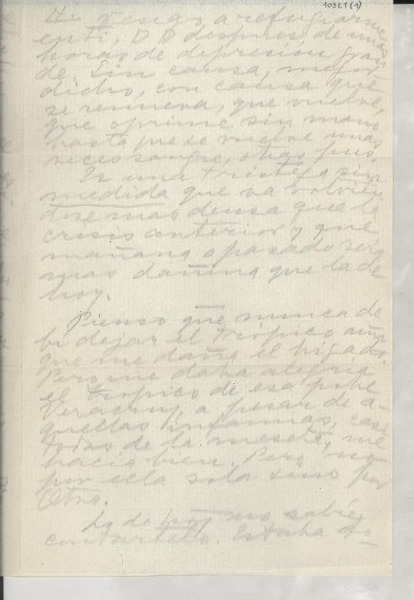 10321 (1)
H. Vengo a refugiarme
en ti, D D despues de unas
horas de depresión gran
de. Sin causa, mejor
dicho, con causa que
se renueva, que vuelve,
que oprime sin mano
hasta que se vuelve unas
veces sangre, otras pus.
Es una tristeza sin
medida que va volvién
dose mas densa que la
crisis anterior y que
mañana o pasado será
mas dañina que la de
hoy.
Pienso que nunca de
bi dejar el trópico aun
que me daña el hígado.
Pero me daba alegria
el tropico de esa pobre
Veracruz, a pesar de a-
quellas infamias, casi
todas de la meseta, me
hacía bien. Pero no
por ella sola sino por
Otra.
Lo de hoy no sabría
contártelo. Estaba